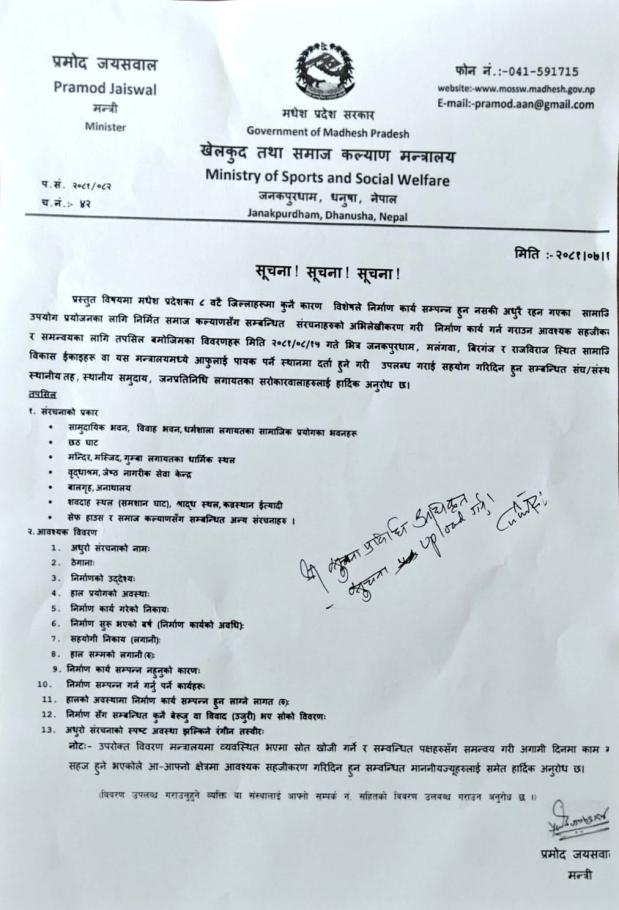 प्रमोद जयसवाल
Pramod Jaiswal
मन्त्री
Minister
मधेश प्रदेश सरकार
Government of Madhesh Pradesh
खेलकुद तथा समाज कल्याण मन्त्रालय
Ministry of Sports and Social Welfare
जनकपुरधाम, धनुषा, नेपाल
Janakpurdham, Dhanusha, Nepal
फोन नं.:-041-591715
website:-www.mossw.madhesh.gov.np
E-mail:-pramod.aan@gmail.com
प.सं. २०८१/०८२
च.नं.:- ४२
मिति :-२०८१।०७।१
सूचना! सूचना! सूचना!
प्रस्तुत विषयमा मधेश प्रदेशका ८ वटै जिल्लाहरुमा कुनै कारण विशेषले निर्माण कार्य सम्पन्न हुन नसकी अधुरै रहन गएका सामाजि
उपयोग प्रयोजनका लागि निर्मित समाज कल्याणसँग सम्बन्धित संरचनाहरुको अभिलेखीकरण गरी निर्माण कार्य गर्न गराउन आवश्यक सहजीका
र समन्वयका लागि तपसिल बमोजिमका विवरणहरु मिति २०८१/०८/१५ गते भित्र जनकपुरधाम, मलंगवा, बिरगंज र राजविराज स्थित सामाजि
विकास ईकाइहरू वा यस मन्त्रालयमध्ये आफुलाई पायक पर्ने स्थानमा दर्ता हुने गरी उपलब्ध गराई सहयोग गरिदिन हुन सम्बन्धित संघ/संस्थ
स्थानीय तह, स्थानीय समुदाय, जनप्रतिनिधि लगायतका सरोकारवालाहरुलाई हार्दिक अनुरोध छ।
तपसिल
१. संरचनाको प्रकार
• सामुदायिक भवन, विवाह भवन,धर्मशाला लगायतका सामाजिक प्रयोगका भवनहरू
• छठ घाट
• मन्दिर,मस्जिद,गुम्बा लगायतका धार्मिक स्थल
• वृद्धाश्रम,जेष्ठ नागरीक सेवा केन्द्र
• बालगृह,अनाथालय
• शवदाह स्थल (समशान घाट), श्राद्ध स्थल,कव्रस्थान ईत्यादी
• सेफ हाउस र समाज कल्याणसँग सम्बन्धित अन्य संरचनाहरु ।
२.आवश्यक विवरण
1. अधुरो संरचनाको नामः
2. ठेगानाः
3. निर्माणको उद्देश्यः
4. हाल प्रयोगको अवस्थाः
5. निर्माण कार्य गरेको निकायः
6. निर्माण सुरू भएको बर्ष (निर्माण कार्यको अवधि):
7. सहयोगी निकाय (लगानी):
8. हाल सम्मको लगानी (रु):
9. निर्माण कार्य सम्पन्न नहुनुको कारणः
10. निर्माण सम्पन्न गर्न गर्नु पर्ने कार्यहरूः
11. हालको अवस्थामा निर्माण कार्य सम्पन्न हुन लाग्ने लागत (रु):
12. निर्माण सँग सम्बन्धित कुनै बेरूजु वा विवाद (उजुरी) भए सोको विवरणः
13. अधुरो संरचनाको स्पष्ट अवस्था झल्किने रंगीन तस्वीरः
नोटः- उपरोक्त विवरण मन्त्रालयमा व्यवस्थित भएमा स्रोत खोजी गर्ने र सम्वन्धित पक्षहरुसँग समन्वय गरी अगामी दिनमा काम ग
सहज हुने भएकोले आ-आफ्नो क्षेत्रमा आवश्यक सहजीकरण गरिदिन हुन सम्वन्धित माननीयज्यूहरुलाई समेत हार्दिक अनुरोध छ।
(विवरण उपलब्ध गराउनुहुने व्यक्ति वा संस्थालाई आफ्नो सम्पर्क नं. सहितको विवरण उलवब्ध गराउन अनुरोध छ ।)
सूचना प्रविधि अधिकृत
सूचना upload गर्नु!
प्रमोद जयसवा
मन्त्री